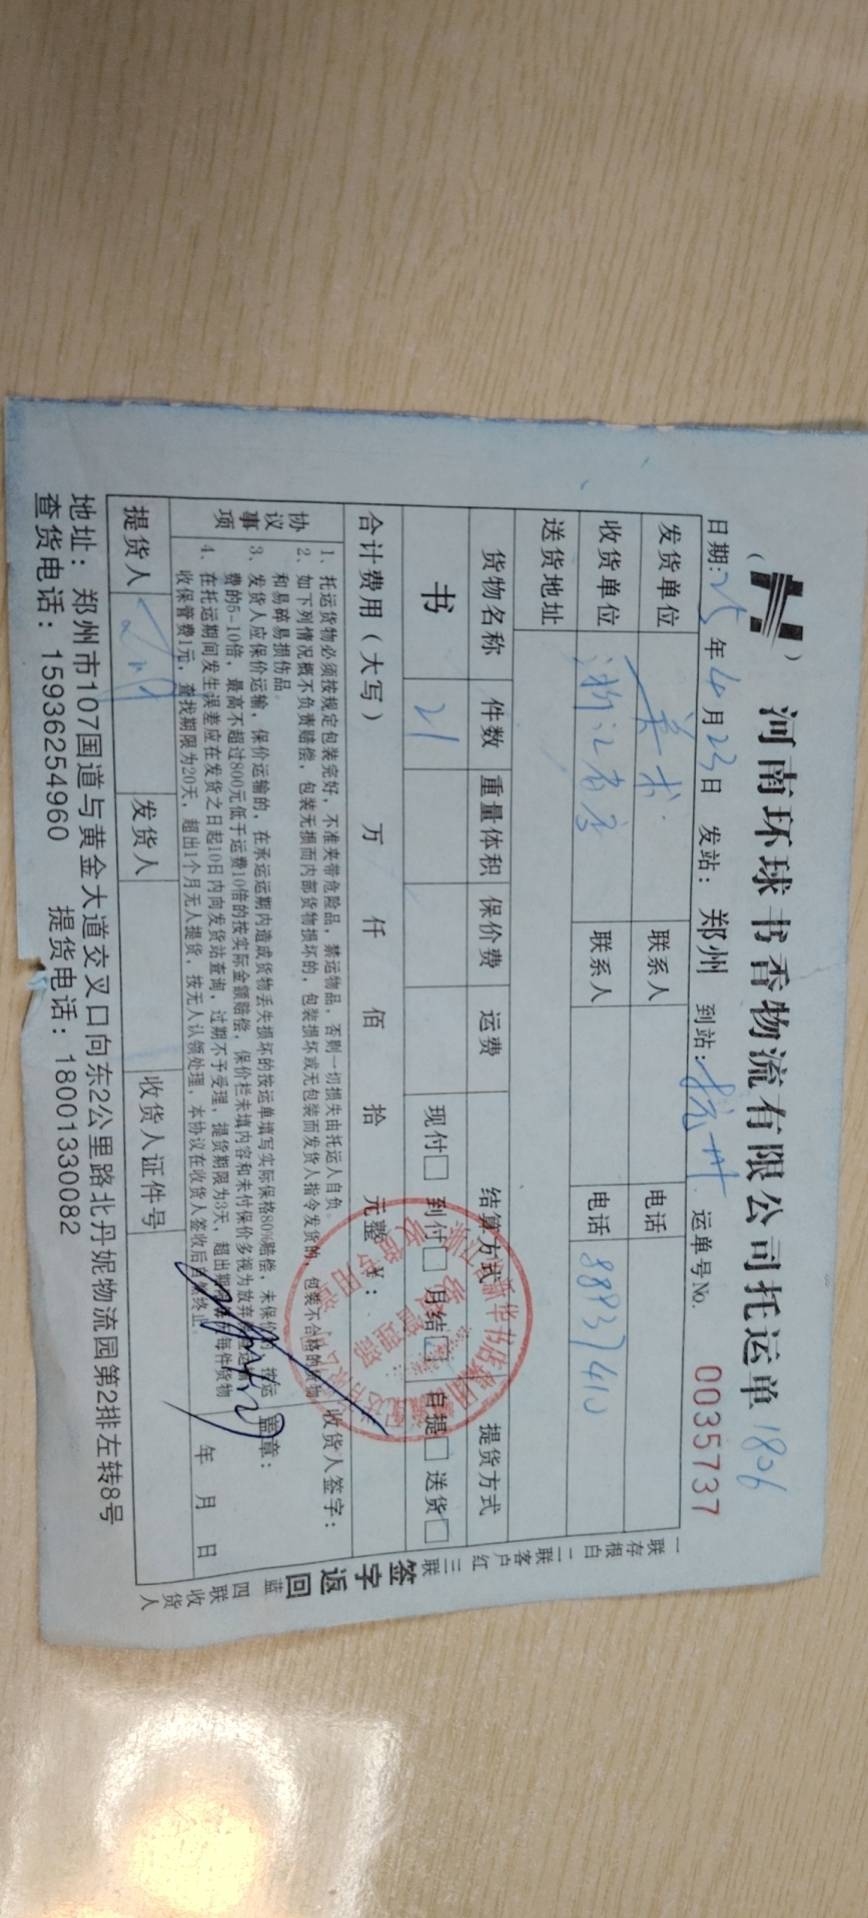 河南环球书香物流有限公司托运单 1806
日期:25年4月23日 发站:郑州 到站:杭州 运单号No. 0035737
发货单位 美术 联系人 电话
收货单位 浙江省店 联系人 电话 88937410
送货地址
货物名称 件数 重量体积 保价费 运费 结算方式 提货方式
书 21 现付□ 到付□ 月结□ 自提□ 送货□
合计费用（大写） 万 仟 佰 拾 元整 ¥：
协议事项
1、托运货物必须按规定包装完好，不准夹带危险品，禁运物品，否则一切损失由托运人自负。
2、如下列情况概不负责赔偿，包装无损而内部货物损坏的，包装损坏或无包装而发货人指令发货的，包装不合格的货物
和易碎易损伤品。
3、发货人应保价运输，保价运输的，在承运运期内造成货物丢失损坏的按运单填写实际保格80%赔偿，未保价的，按运
费的5-10倍，最高不超过800元低于运费10倍的按实际金额赔偿，保价栏未填内容和未付保价多视为放弃
4、在托运期间发生误差应在发货之日起10日内向发货站查询，过期不予受理，提货期限为3天，超出期 每件货物
收保管费1元，查找期限为20天，超出1个月无人提货，按无人认领处理，本协议在收货人签收后 终止。
收货人签字：
盖章：
年 月 日
提货人 发货人 收货人证件号
地址：郑州市107国道与黄金大道交叉口向东2公里路北丹妮物流园第2排左转8号
查货电话：15936254960 提货电话：18001330082
一联存根白 二联客户红 三联签字返回蓝 四联收货人
新华书店集团
管理部
收货专用章